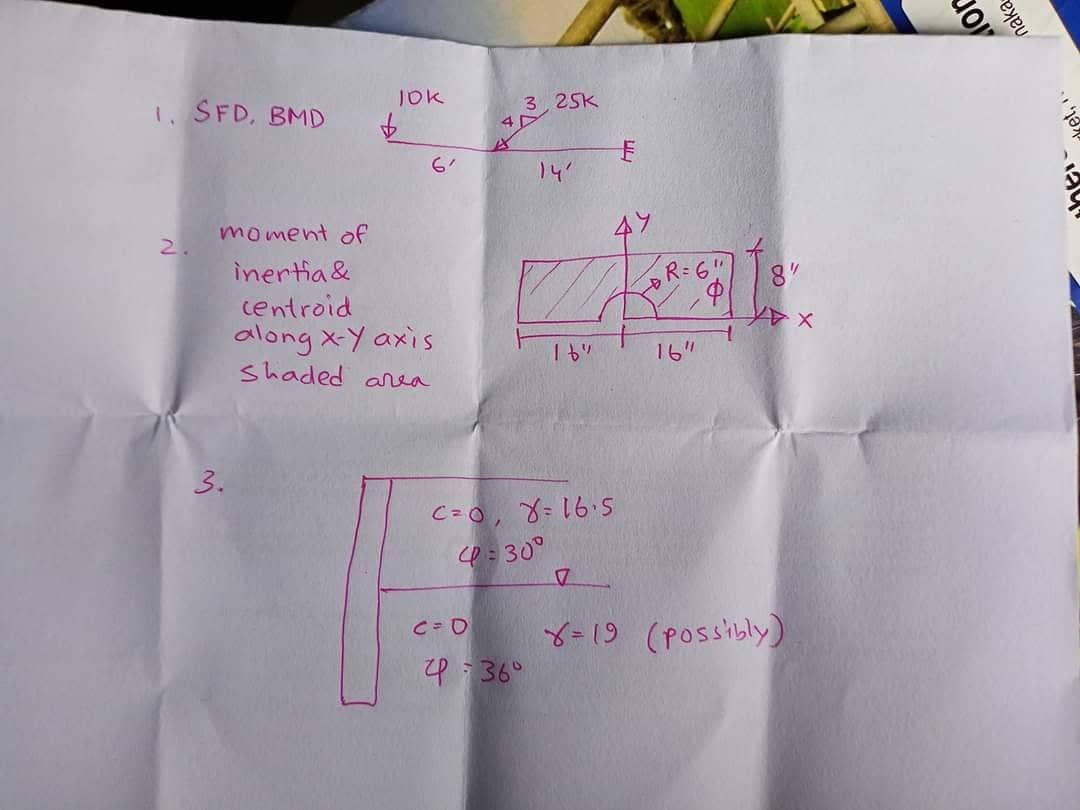 1. SFD, BMD
10K
3 25K
4
6'
14'
2. moment of
inertia &
centroid
along x-Y axis
shaded area
Y
R=6"
φ
8"
X
16"
16"
3.
c=0, γ=16.5
φ=30°
c=0
γ=19 (possibly)
φ=36°
naka